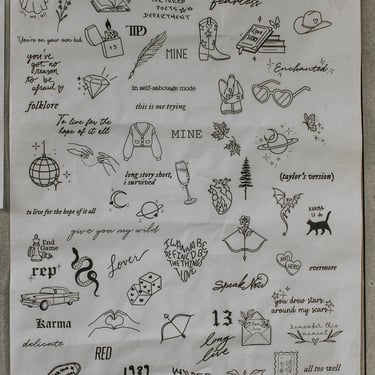 fearless
TORTURED
POETS
DEPARTMENT
You're on your own kid
TTPD
MINE
LOVE
STORY
you've
got no
reason
to be
afraid
Enchanted
in self-sabotage mode
folklore
this is me trying
To live for the
hope of it all
MINE
long story short,
i survived
(taylor's version)
to live for the hope of it all
KARMA
IS A
give you my wild
End
Game
I WANNA BE
DEFINED BY
THE THINGS
I LOVE
Lover
ANTI
HERO
rep
evermore
Speak Now
you drew stars
around my scars
Karma
13
remember this
moment
delicate
long
live
RED
1989
all too well